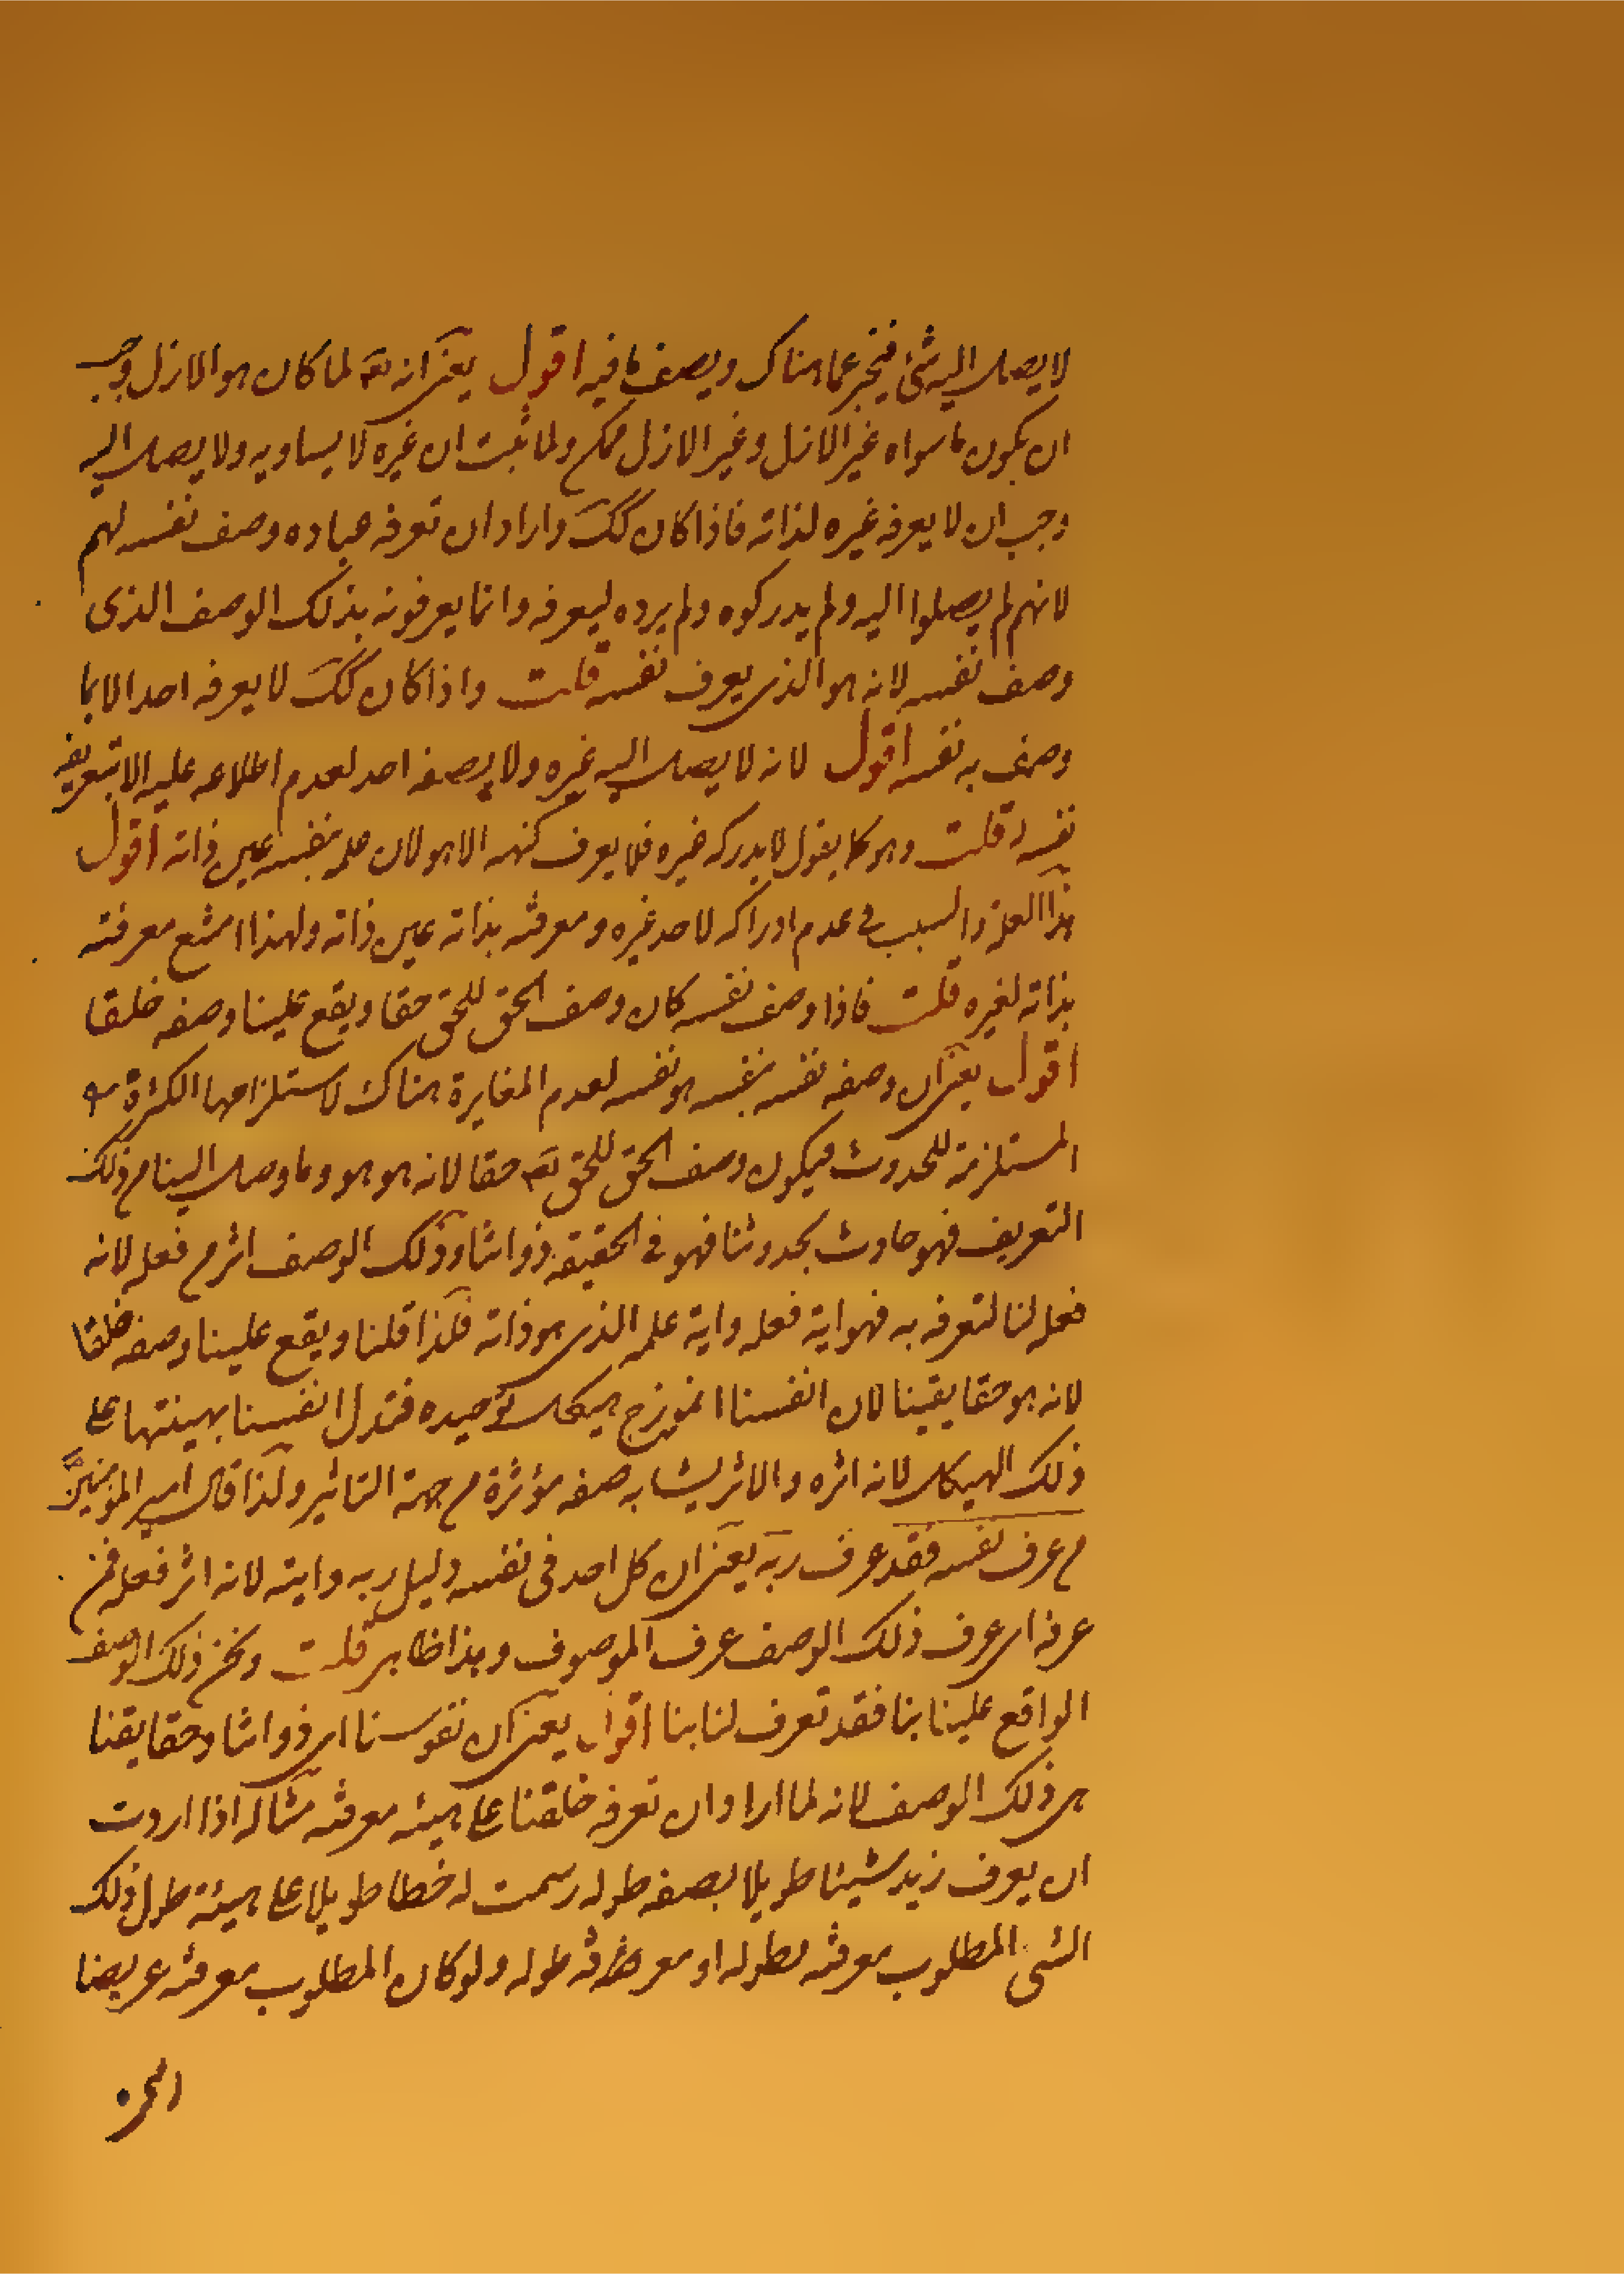 لا يصل اليه شئ فيخبر عما هناك ويصف ما فيه اقول يعنى انه تع لما كان هو الازل وجب
ان يكون ما سواه غير الازل وغير الازل ممكن ولما ثبت ان غيره لا يساويه ولا يصل اليه
وجب ان لا يعرفه غيره لذاته فاذا كان كك واراد ان تعرفه عباده وصف نفسه لهم
لانهم لم يصلوا اليه ولم يدركوه ولم يرده ليعرفه وانما يعرفونه بذلك الوصف الذى
وصف نفسه لانه هو الذى يعرف نفسه قلت واذا كان كك لا يعرفه احد الا بما
وصف به نفسه اقول لانه لا يصل اليه غيره ولا يصفه احد لعدم اطلاعه عليه الا بتعريفه
نفسه له قلت وهو كما يقول لا يدركه غيره فلا يعرف كنهه الا هو لان علمه بنفسه عين ذاته اقول
هذا العلة والسبب فى عدم ادراكه لاحد غيره ومعرفته بذاته عين ذاته ولهذا امتنع معرفته
بذاته لغيره قلت فاذا وصف نفسه كان وصف الحق للحق حقا ويقع علينا وصفه خلقا
اقول يعنى ان وصفه نفسه بنفسه هو نفسه لعدم المغايرة هناك لاستلزامها الكثرة
المستلزمة للحدوث فيكون وصف الحق للحق تع حقا لانه هو هو وما وصل الينا من ذلك
التعريف فهو حادث بحدوثنا فهو فى الحقيقة ذواتنا وذلك الوصف اثر من فعله لانه
فعله لنا لتعرفه به فهو اية فعله واية علمه الذى هو ذاته فلذا قلنا ويقع علينا وصفه خلقا
لانه هو حقايقينا لان انفسنا انموزج هيكل توحيده فتدل انفسنا بهيئتها على
ذلك الهيكل لانه اثره والاثر يشابه صفه مؤثرة من جهة التاثير ولذا قال امير المؤمنين
من عرف نفسه فقد عرف ربه يعنى ان كل احد فى نفسه دليل ربه وايته لانه اثر فعله فمن
عرفه اى عرف ذلك الوصف عرف الموصوف وهذا ظاهر قلت ونحن ذلك الوصف
الواقع علينا بنا فقد تعرف لنا بنا اقول يعنى ان نفوسنا اى ذواتنا وحقايقنا
هى ذلك الوصف لانه لما اراد ان تعرفه خلقنا على هيئه معرفته مثاله اذا اردت
ان يعرف زيد شيئا طويلا بصفه طوله رسمت له خطا طويلا على هيئة طول ذلك
الشى المطلوب معرفته بطوله او معرفة طوله ولو كان المطلوب معرفته عريضا